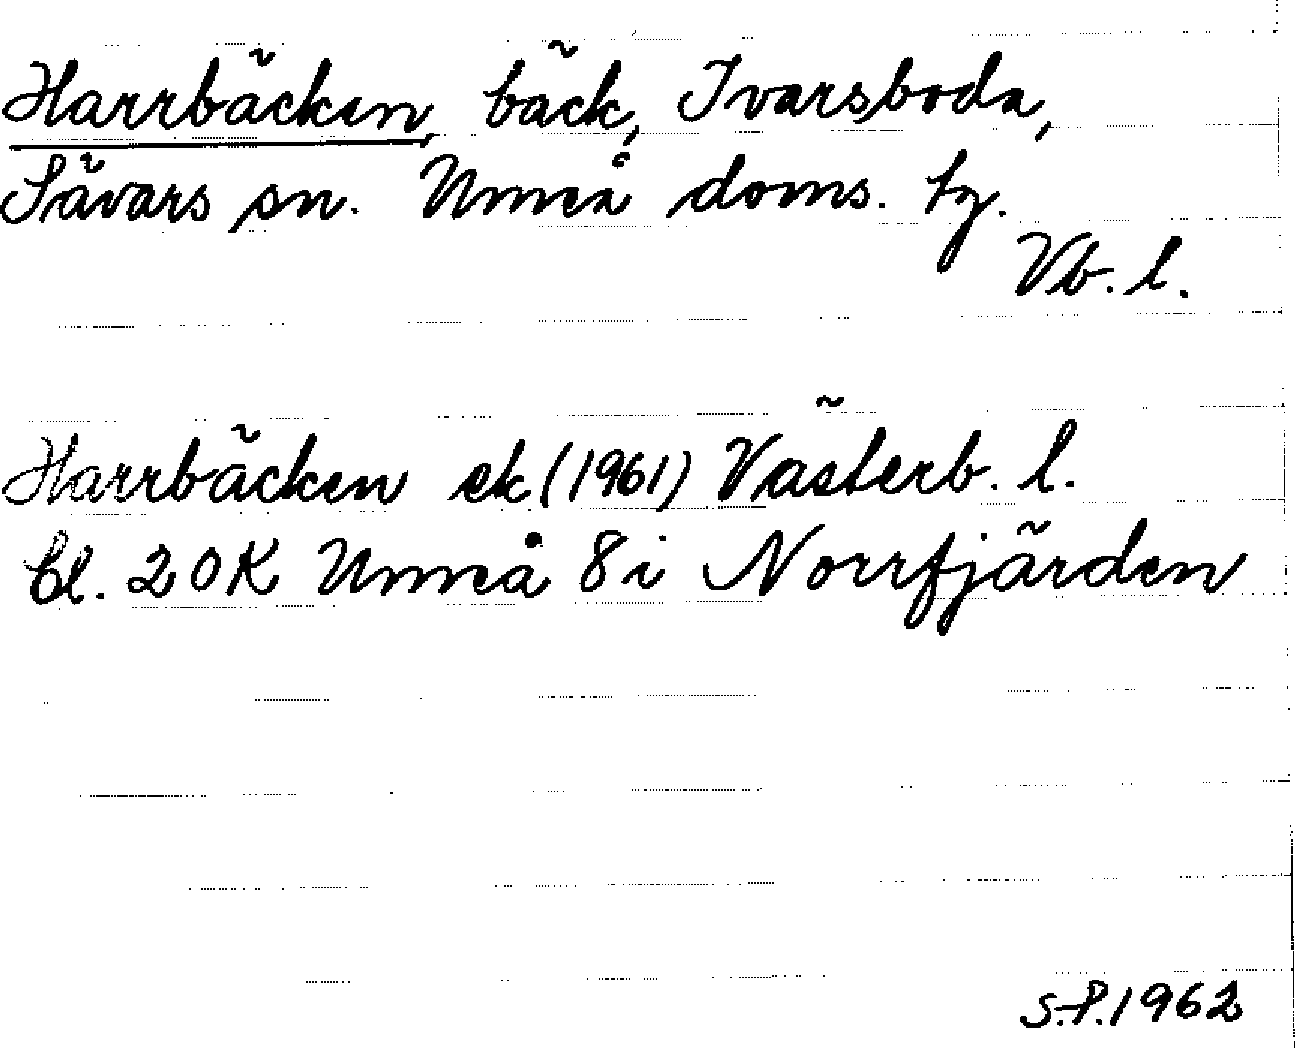 Harrbäcken, bäck, Ivarsboda,
Sävars sn. Umeå doms. tg.
Vb. l.
Harrbäcken ek (1961) Västerb. l.
bl. 20K Umeå 8i Norrfjärden
S.P. 1962